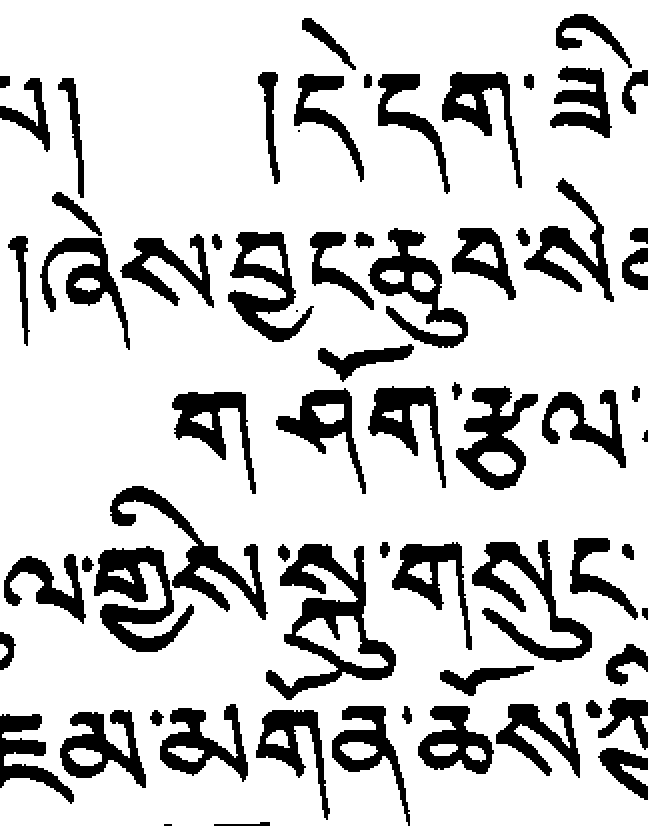 པ། །དེ་དག་
།ཞེས་བྱང་ཆུབ་སེ
ག ཤོག་རྩལ་
ལ་གྱིས་སྐུ་གསུང་
ཇམ་མགོན་ཆོས་